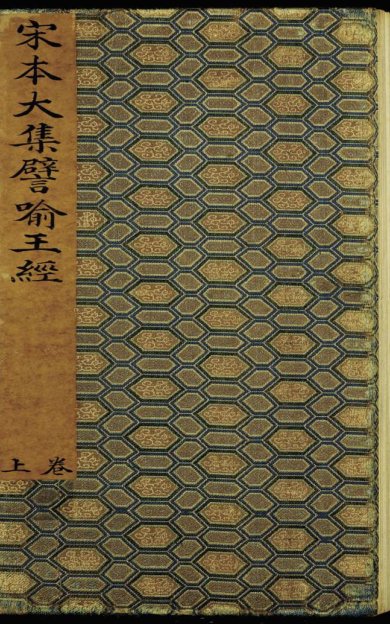 宋本大集譬喻王經
卷上